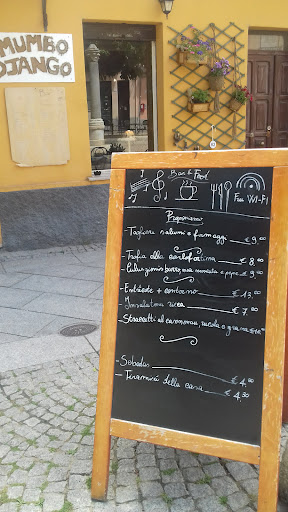 MUMBO
DJANGO
Bar & Food
Free Wi-Fi
Proponiamo
- Tagliere salumi e formaggi € 9,00
- Trofia alla carlofortina € 8,00
- Culurgionis burro, menta e pepe € 9,00
- Entrecote + contorno € 13,00
- Insalatona ricca € 7,00
- Straccetti al carmona, rucola e grana € 10,00
- Sebadas € 4,00
- Tiramisù della casa € 4,50